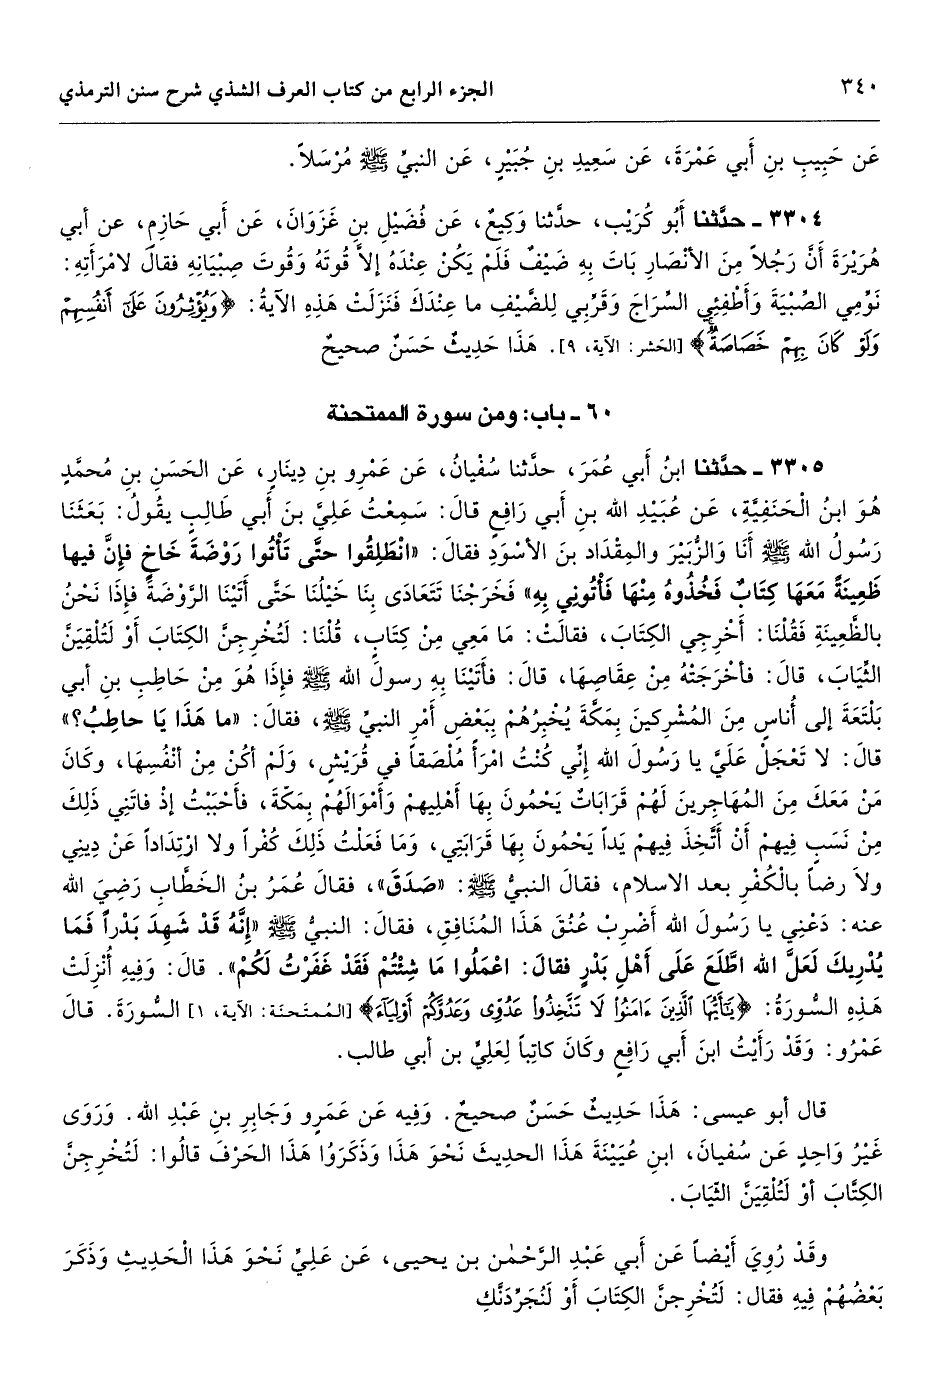 ٣٤٠ الجزء الرابع من كتاب العرف الشذي شرح سنن الترمذي
عَن حَبِيبِ بنِ أَبي عَمْرَةَ، عَن سَعِيدِ بنِ جُبَيْرٍ، عَن النبيِّ ﷺ مُرْسَلاً.
٣٣٠٤ ـ حدَّثنا أَبُو كُرَيْبٍ، حدَّثنا وَكِيعٌ، عَن فُضَيْلِ بنِ غَزَوَانَ، عَن أَبي حَازِمٍ، عن أبي
هُرَيْرَةَ أَنَّ رَجُلاً مِنَ الأنْصَارِ بَاتَ بِهِ ضَيْفٌ فَلَمْ يَكُنْ عِنْدَهُ إلاَّ قُوتَهُ وَقُوتَ صِبْيَانِهِ فقالَ لامْرَأَتِهِ:
نَوِّمِي الصِّبْيَةَ وَأَطْفِئِي السِّرَاجَ وَقَرِّبي لِلضَّيْفِ ما عِنْدَكَ فَنَزَلَتْ هَذِهِ الآيةُ: ﴿وَيُؤْثِرُونَ عَلَىٰٓ أَنفُسِهِمْ
وَلَوْ كَانَ بِهِمْ خَصَاصَةٌ﴾ [الحَشر: الآية، ٩]. هَذَا حَدِيثٌ حَسَنٌ صحيحٌ
٦٠ ـ باب: ومن سورة الممتحنة
٣٣٠٥ ـ حدَّثنا ابنُ أَبي عُمَرَ، حدَّثنا سُفْيانُ، عَن عَمْرِو بنِ دِينَارٍ، عَن الحَسَنِ بنِ مُحمَّدٍ
هُوَ ابنُ الْحَنَفِيَّةِ، عَن عُبَيْدِ الله بنِ أبي رَافِعٍ قالَ: سَمِعْتُ عَلِيَّ بنَ أبي طَالِبٍ يقُولُ: بَعَثَنَا
رَسُولُ الله ﷺ أَنَا وَالزُّبَيْرَ والمِقْدَادَ بنَ الأسْوَدِ فقالَ: «انْطَلِقُوا حتَّى تَأْتُوا رَوْضَةَ خَاخٍ فإنَّ فيها
ظَعِينَةً مَعَهَا كِتَابٌ فَخُذُوهُ مِنْهَا فَأْتُونِي بِهِ» فَخَرَجْنَا تَتَعَادَى بِنَا خَيْلُنَا حَتَّى أَتَيْنَا الرَّوْضَةَ فإذَا نَحْنُ
بالظَّعِينَةِ فَقُلْنَا: أَخْرِجِي الكِتَابَ، فقالَتْ: مَا مَعِي مِنْ كِتَابٍ، قُلْنَا: لَتُخْرِجِنَّ الكِتَابَ أَوْ لَتُلْقِيَنَّ
الثِّيَابَ، قالَ: فأخْرَجَتْهُ مِنْ عِقَاصِهَا، قالَ: فأتَيْنَا بِهِ رسولَ الله ﷺ فإذَا هُوَ مِنْ حَاطِبِ بنِ أبي
بَلْتَعَةَ إلى أُناسٍ مِنَ المُشْرِكينَ بِمَكَّةَ يُخْبِرُهُمْ بِبَعْضِ أَمْرِ النبيِّ ﷺ، فقالَ: «ما هَذَا يَا حاطِبُ؟»
قالَ: لا تَعْجَلْ عَلَيَّ يا رَسُولَ الله إنِّي كُنْتُ امْرَأً مُلْصَقاً في قُرَيْشٍ، وَلَمْ أكُنْ مِنْ أنْفُسِهَا، وكَانَ
مَنْ مَعَكَ مِنَ المُهَاجِرينَ لَهُمْ قَرَابَاتٌ يَحْمُونَ بِهَا أَهْلِيهِمْ وَأَمْوَالَهُمْ بِمَكّةَ، فَأحْبَبْتُ إذْ فاتَنِي ذَلِكَ
مِنْ نَسَبٍ فِيهِمْ أَنْ أتَّخِذَ فِيهِمْ يَداً يَحْمُونَ بِهَا قَرَابَتِي، وَمَا فَعَلْتُ ذَلِكَ كُفْراً ولا ارْتِدَاداً عَنْ دِينِي
ولاَ رضاً بالْكُفْرِ بعد الاسلام، فقالَ النبيُّ ﷺ: «صَدَقَ»، فقالَ عُمَرُ بنُ الخَطَّابِ رَضِيَ الله
عنه: دَعْنِي يا رَسُولَ الله أَضْرِبْ عُنُقَ هَذَا المُنَافِقِ، فقالَ: النبيُّ ﷺ «إنَّهُ قَدْ شَهِدَ بَدْراً فَمَا
يُدْرِيكَ لَعَلَّ الله اطَّلَعَ عَلَى أَهْلِ بَدْرٍ فقالَ: اعْمَلُوا مَا شِئْتُمْ فَقَدْ غَفَرْتُ لَكُمْ». قالَ: وَفِيهِ أُنْزِلَتْ
هَذِهِ السُّورَةُ: ﴿يَٰٓأَيُّهَا ٱلَّذِينَ ءَامَنُوا۟ لَا تَتَّخِذُوا۟ عَدُوِّى وَعَدُوَّكُمْ أَوْلِيَآءَ﴾ [المُمتَحنَة: الآية، ١] السُّورَةَ. قالَ
عَمْرُو: وَقَدْ رَأَيْتُ ابنَ أبي رَافِعٍ وكَانَ كاتِباً لِعَلِيِّ بن أبي طالب.
قال أبو عيسى: هَذَا حَدِيثٌ حَسَنٌ صحيحٌ. وَفِيه عَن عَمَرٍو وَجَابِرِ بنِ عَبْدِ الله. وَرَوَى
غَيْرُ وَاحِدٍ عَن سُفيانَ، ابنِ عُيَيْنَةَ هَذَا الحديثَ نَحْوَ هَذَا وَذَكَرَوُا هَذَا الحَرْفَ قالُوا: لَتُخْرِجِنَّ
الكِتَّابَ أوْ لَتُلْقِيَنَّ الثّيَابَ.
وقَدْ رُوِيَ أَيْضاً عَن أبي عَبْدِ الرَّحْمٰن بن يحيى، عَن عَلِيٍّ نَحْوَ هَذَا الْحَدِيثِ وَذَكَرَ
بَعْضُهُمْ فِيهِ فقال: لَتُخْرِجنَّ الكِتَابَ أَوْ لَنُجَرِّدَنَّكِ